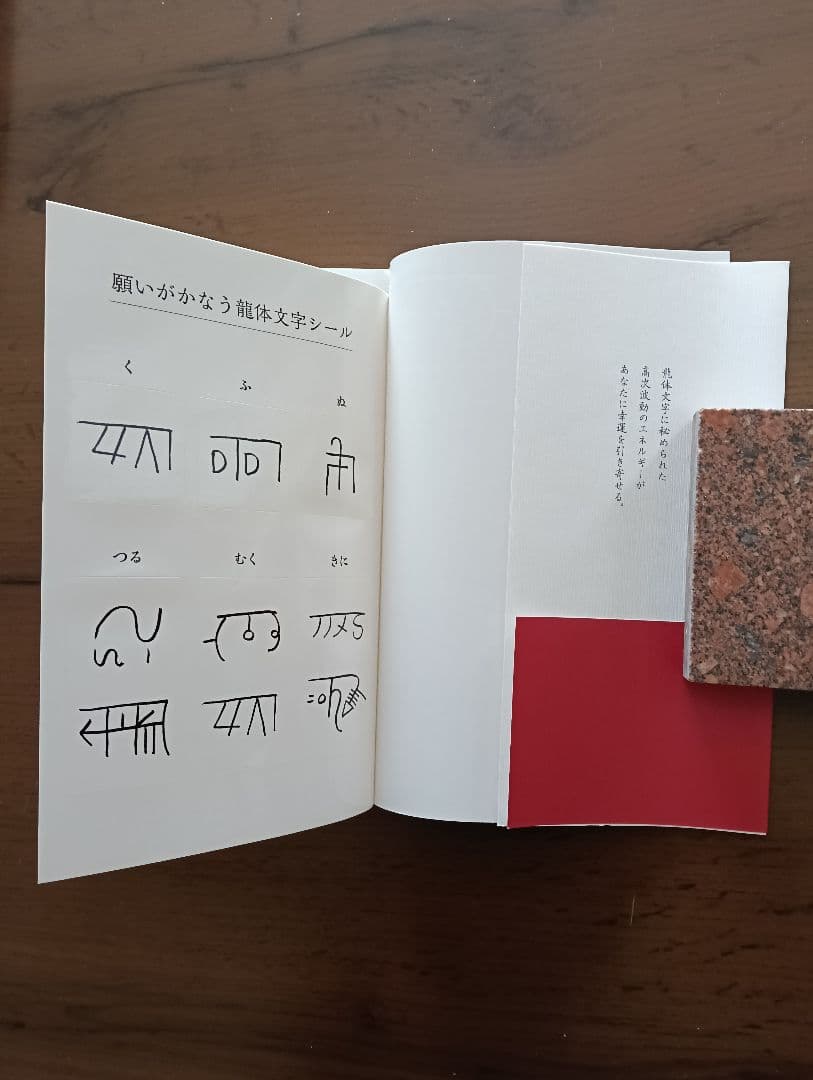 願いがかなう龍体文字シール
く
ふ
ぬ
つる
むく
きに
龍体文字に秘められた
高次波動のエネルギーが
あなたに幸運を引き寄せる。